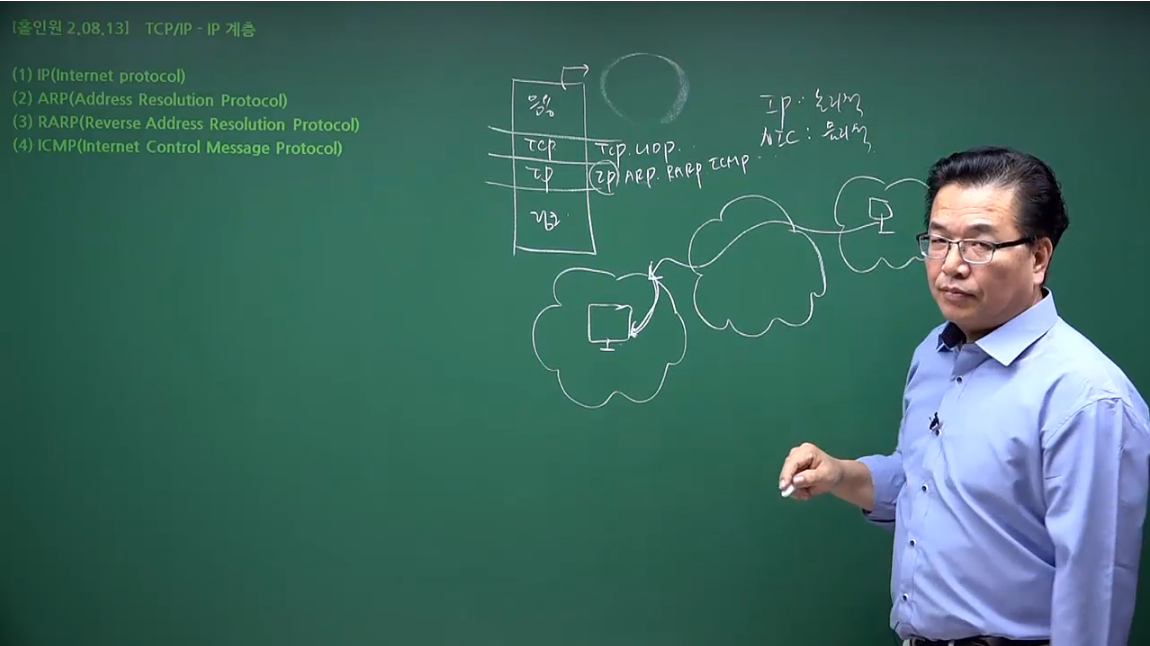 [홀인원 2.08.13] TCP/IP - IP 계층
(1) IP(Internet protocol)
(2) ARP(Address Resolution Protocol)
(3) RARP(Reverse Address Resolution Protocol)
(4) ICMP(Internet Control Message Protocol)
응용
TCP TCP. UDP..
IP IP, ARP. RARP ICMP...
IP: 논리적
NIC: 물리적